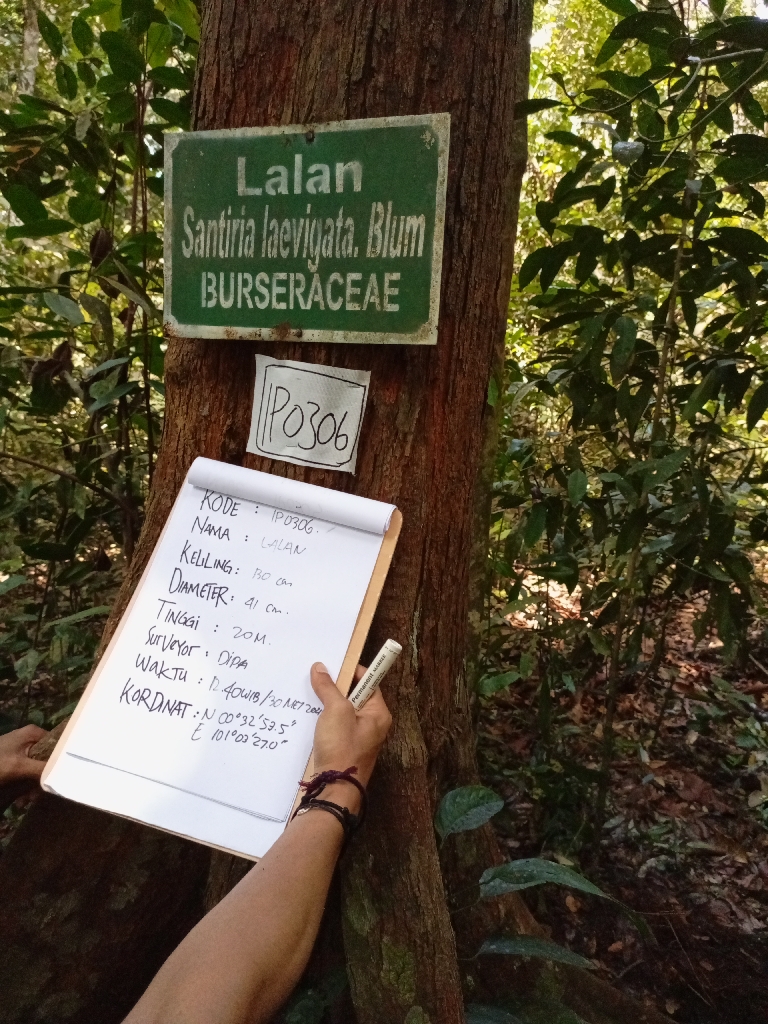 Lalan
Santiria laevigata. Blum
BURSERACEAE
IP0306
KODE : IP0306.
NAMA : LALAN
KELILING : 130 cm
DIAMETER : 41 cm.
TINGGI : 20 M.
SURVEYOR : DIPA
WAKTU : 12.40 WIB / 30 MEI
KORDINAT : N 00°32'53.5"
E 101°03'27.0"
Permanent MARKER